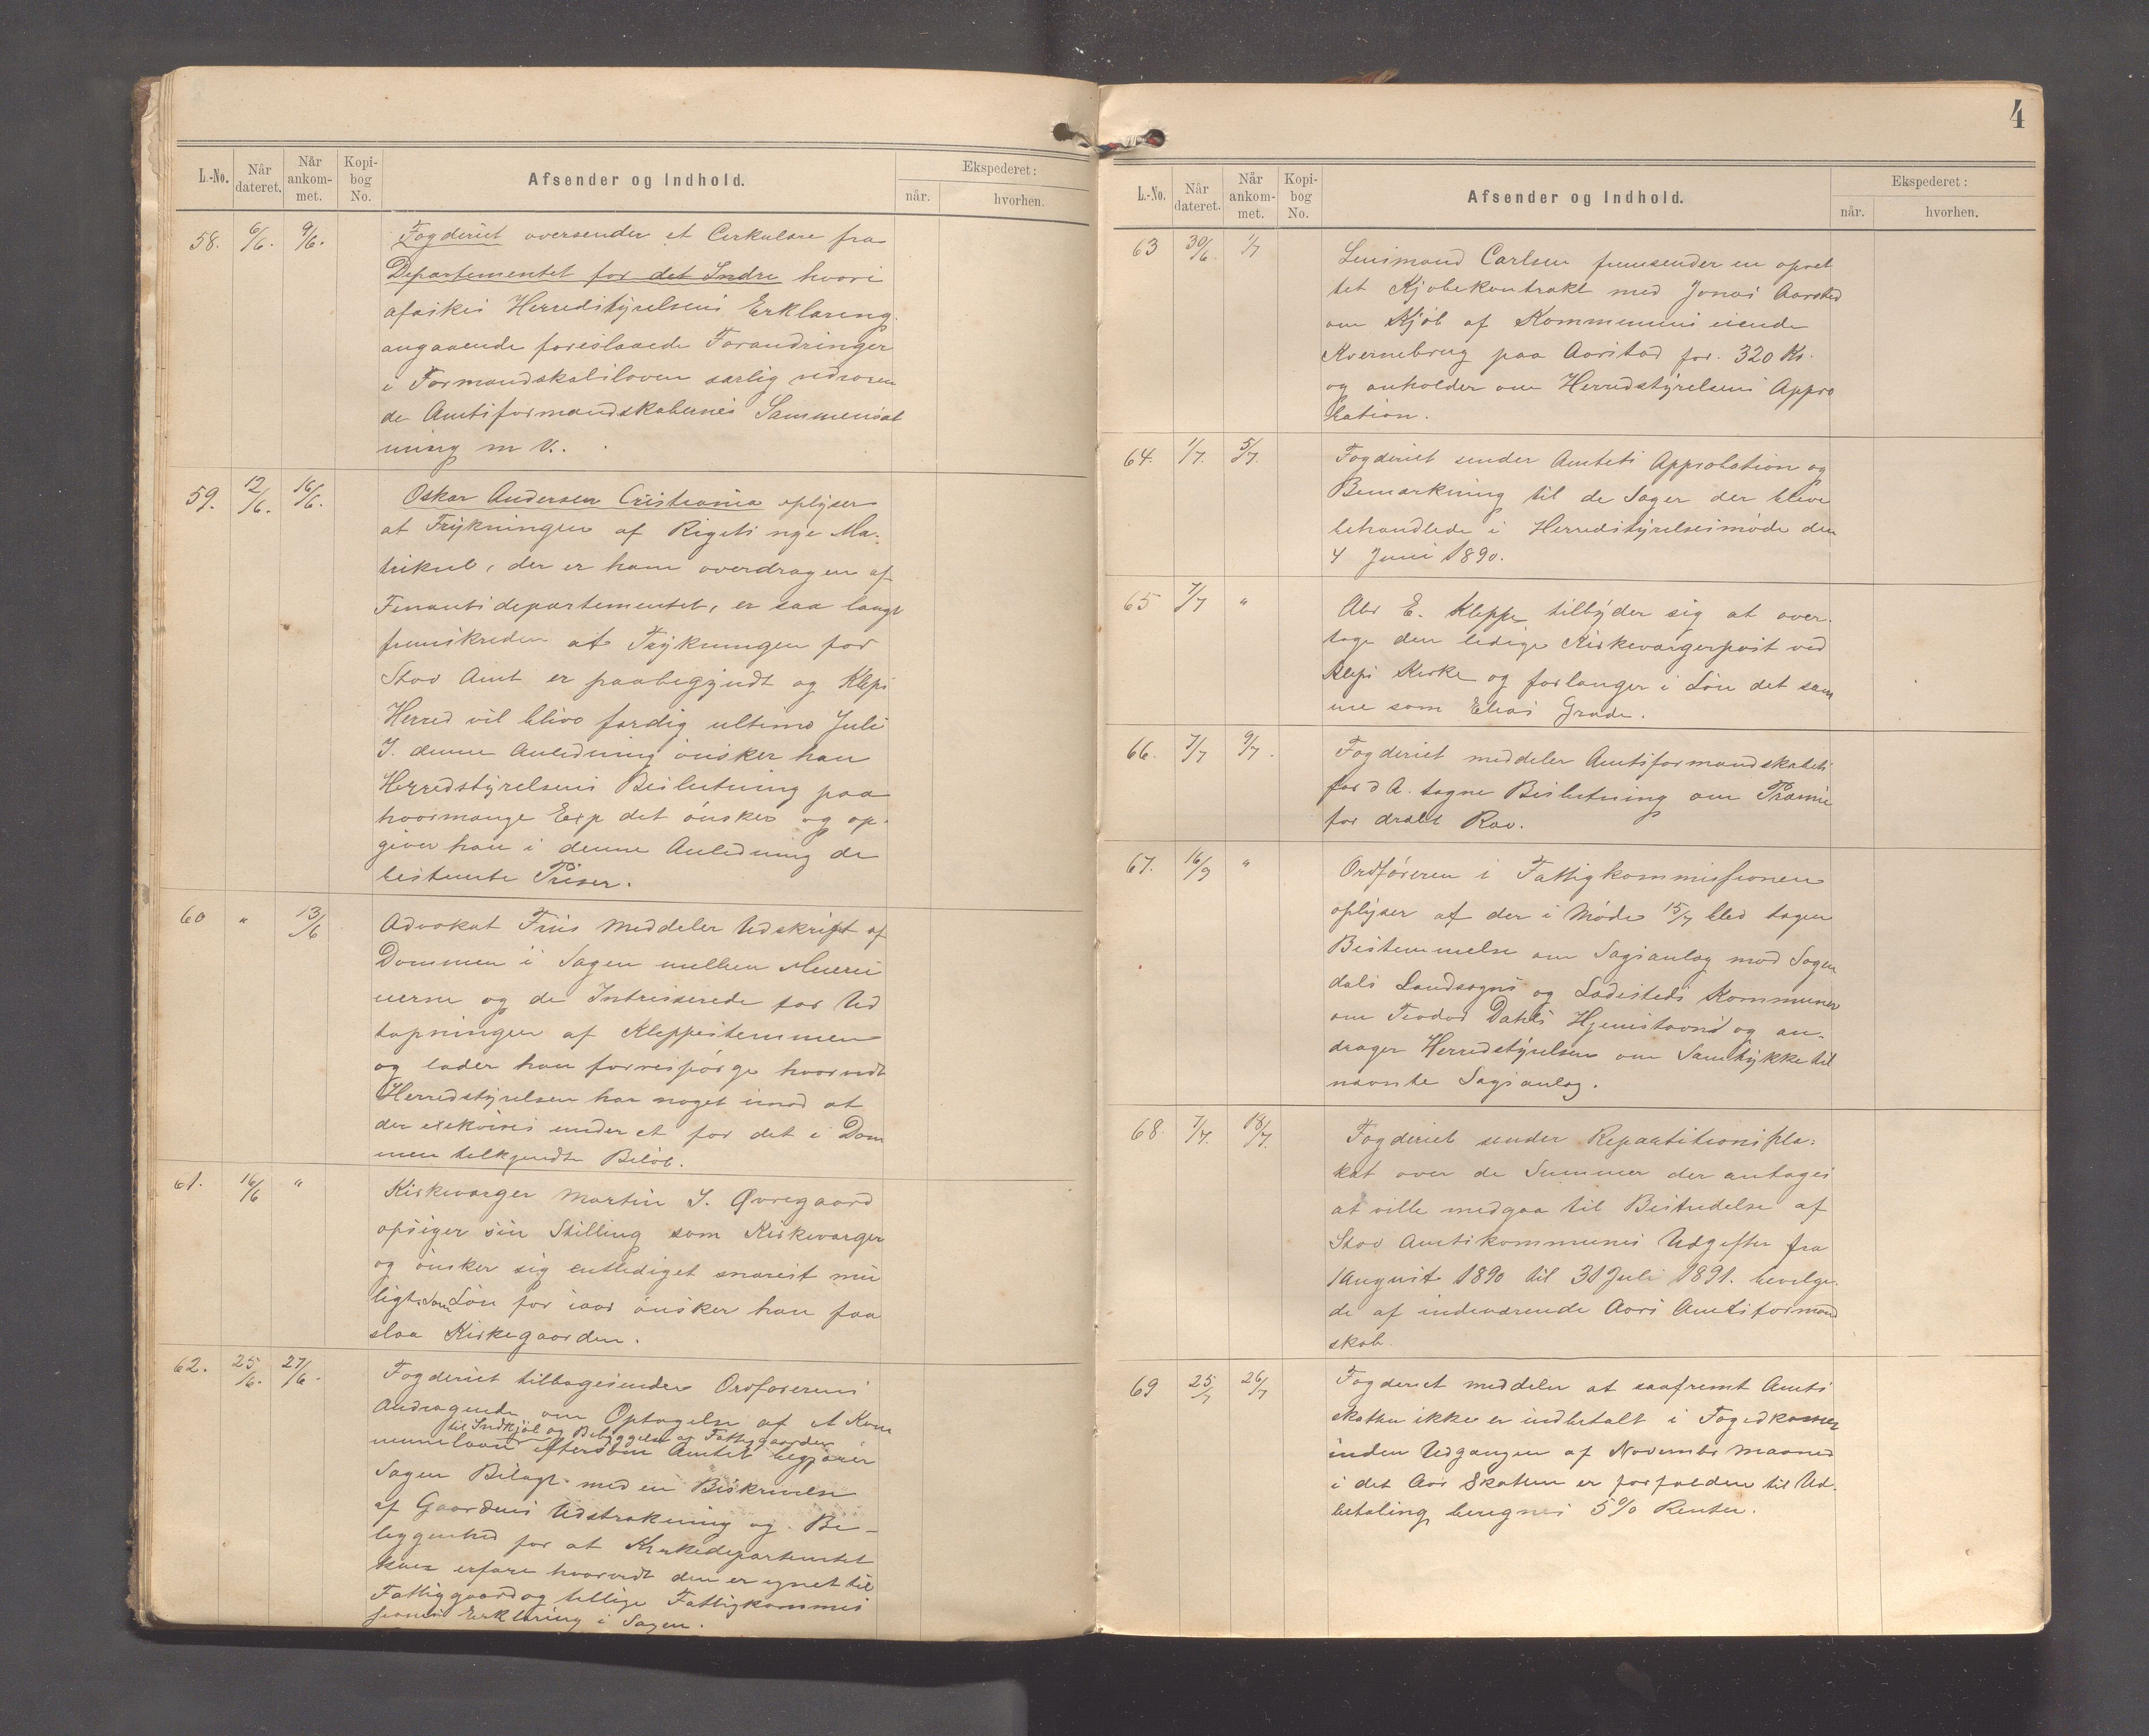 L.-No. Når dateret. Når ankommet. Kopibog No. Afsender og Indhold. Ekspederet: når. hvorhen.
58. 6/6. 9/6. Fogderiet oversender et Cirkulære fra
Departementet for det Indre hvori
afæskes Herredstyrelsens Erklæring
angaaende foreslaaede Forandringer
i Formandskabsloven særlig vedrøren
de Amtsformandskabernes Sammensæt
ning m V..
59. 12/6. 16/6. Oskar Andersen Cristiania oplyser
at Trykningen af Rigets nye Ma-
trikul, der er ham overdragen af
Finantsdepartementet, er saa langt
fremskreden at Trykningen for
Stav Amt er paabegyndt og Kleps
Herred vil blive færdig ultimo Juli
I denne Anledning ønsker han
Herredstyrelsens Beslutning paa
hvormange Exp det ønsker og op-
giver han i denne Anledning de
bestemte Priser.
60 " 13/6 Advokat Friis Meddeler Udskrift af
Dommen i Sagen mellem Meieri
eierne og de Intresserede for Ud
tapningen af Kleppestemmen
og lader han forrespørge hvorvidt
Herredstyrelsen har noget imod at
der exekveres under et for det i Dom
men tilkjendte Beløb.
61. 16/6 " Kirkeværger Martin I. Øvregaard
opsiger sin Stilling som Kirkeværger
og ønsker sig entlediget snarest mu
ligt. Som Løn for iaar ønsker han faa
slaa Kirkegaarden.
62. 25/6. 27/6. Fogderiet tilbagesender Ordførerens
Andragende om Optagelse af et Kom
til Indkjøb og Bebyggelse af Fattiggaarden
munelaan eftersom Amtet begjærer
Sagen Bilagt med en Beskrivelse
af Gaardens Udstrækning og Be-
leggenhed for at Kirkedepartementet
kan erfare hvorvidt den er egnet til
Fattiggaard og tillige Fattigkommis
sionens Erklæring i Sagen.
4
L.-No. Når dateret. Når ankommet. Kopibog No. Afsender og Indhold. Ekspederet: når. hvorhen.
63 30/6 1/7 Lensmand Carlsen fremsender en opret
tet Kjøbekontrakt med Jonas Aarstad
om Kjøb af Kommunens eiende
Kvernebrug paa Aarstad for 320 Kr.
og anholder om Herredstyrelsens Appro
bation.
64. 1/7. 5/7. Fogderiet sender Amtets Approbation og
Bemærkning til de Sager der bleve
behandlede i Herredstyrelsesmøde den
4 Juni 1890.
65 7/7 " Abr E. Kleppe tilbyder sig at over-
tage den ledige Kirkeværgerpost ved
Kleps Kirke og forlanger i Løn det sam
me som Elias Grude.
66. 7/7 9/7. Fogderiet meddeler Amtsformandskabets
for d A. tagne Beslutning om Præmie
for dræbt Rov.
67. 16/9 " Ordføreren i Fattigkommissionen
oplyser at der i Møde 15/7 blev tagen
Bestemmelse om Sagsanlæg mod Sogn
dals Landsogns og Ladesteds Kommuner
om Teodor Dahls Hjemstavn og an-
drager Herredstyrelsen om Samtykke til
nævnte Sagsanlæg.
68. 7/7. 18/7. Fogderiet sender Repartitionspla-
kat over de Summer der antages
at ville medgaa til Bestridelse af
Stav Amtskommunes Udgifter fra
1 August 1890 til 31 Juli 1891. bevilge-
de af indeværende Aars Amtsformand
skab.
69 25/7 26/7 Fogderiet meddeler at saafremt Amts
skatten ikke er indbetalt i Fogedkassen
inden Udgangen af November Maaned
i det Aar Skatten er forfalden til Ud-
betaling beregnes 5% Renter.